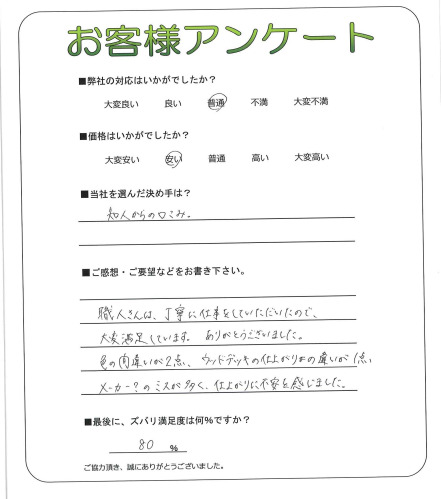 お客様アンケート
■弊社の対応はいかがでしたか?
大変良い 良い 普通 不満 大変不満
■価格はいかがでしたか?
大変安い 安い 普通 高い 大変高い
■当社を選んだ決め手は?
知人からの口こみ。
■ご感想・ご要望などをお書き下さい。
職人さんは、丁寧に仕事をしていただいたので、
大変満足しています。ありがとうございました。
色の間違いが2点、ウッドデッキの仕上がりの違いが1点、
メーカー?のミスが多く、仕上がりに不安を感じました。
■最後に、ズバリ満足度は何%ですか?
80 %
ご協力頂き、誠にありがとうございました。